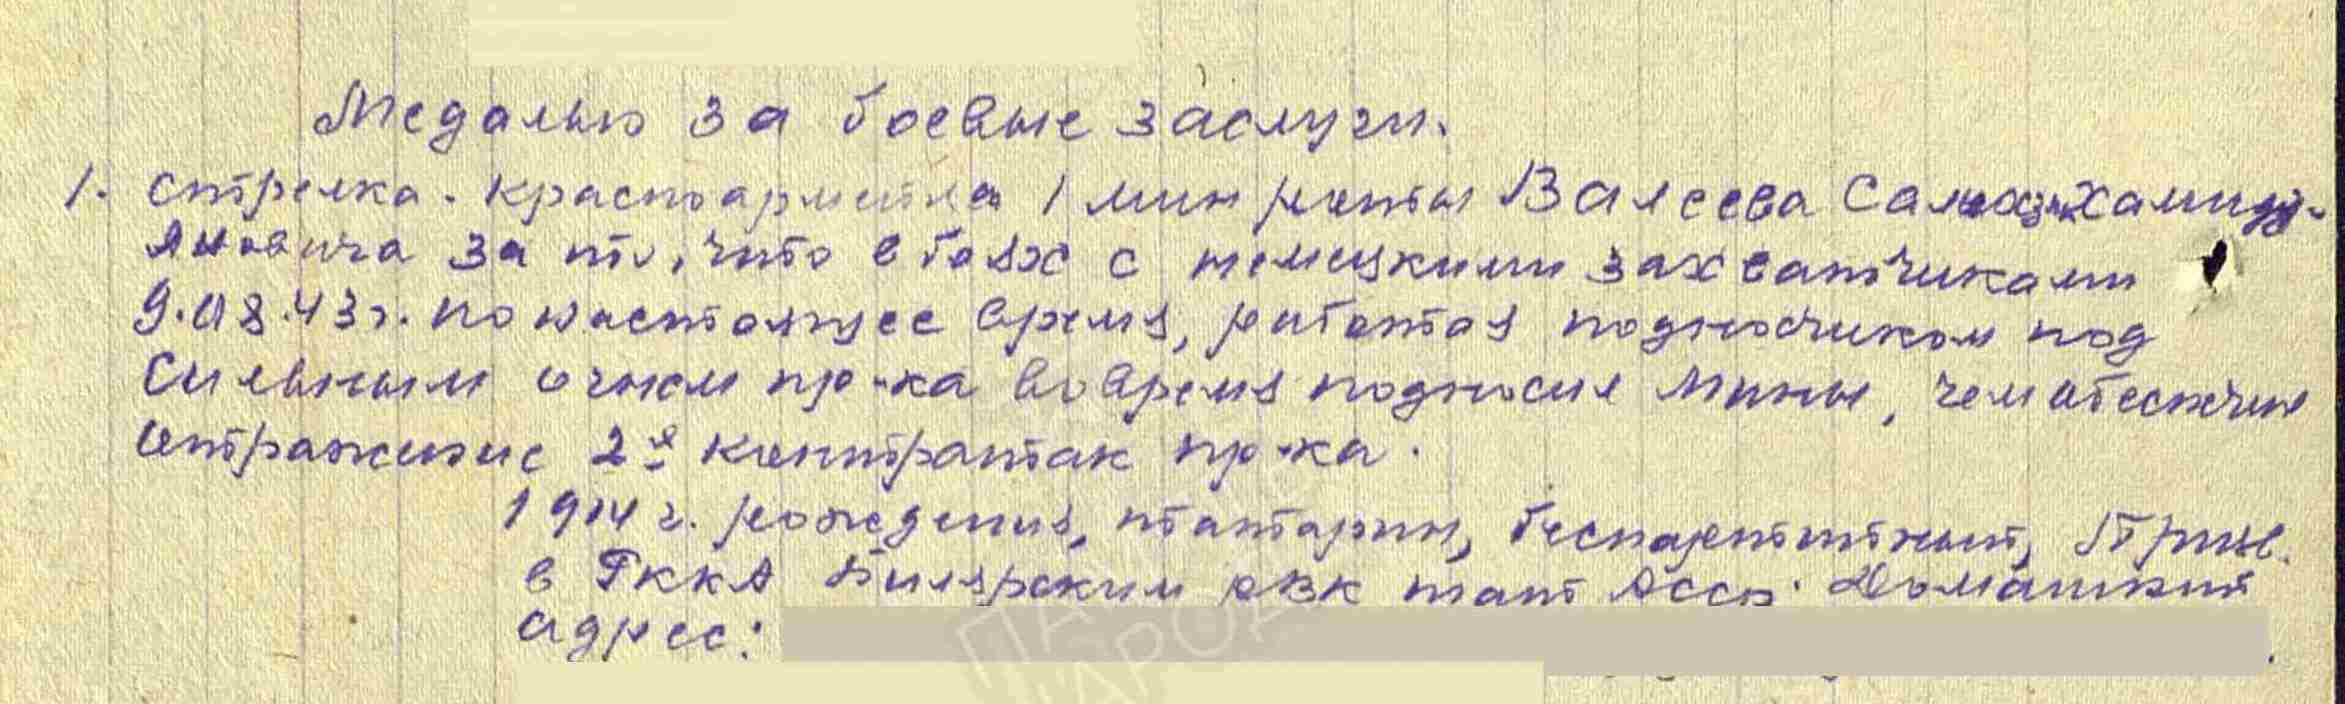 Медалью за боевые заслуги.
1. Стрелка - красноармейца 1 мин роты Валеева Хамид-
яновича за то, что в боях с немецкими захватчиками
9.08.43 г. по настоящее время, работая подносчиком под
сильным огнем пр-ка вовремя подносил мины, чем обеспечил
отражение 2х контратак пр-ка.
1914 г. рождения, татарин, беспартийный, Призв.
в РККА Билярским РВК тат АССР. Домашний
адрес: